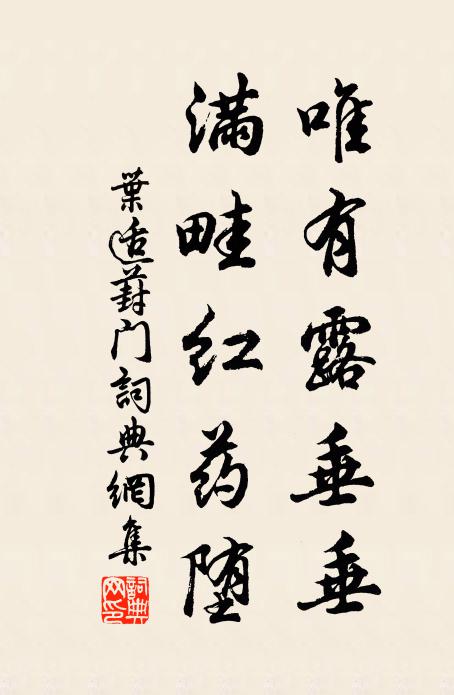 唯有露垂垂
满畦红药堕
葉适葑门詞典網集
詞典网印